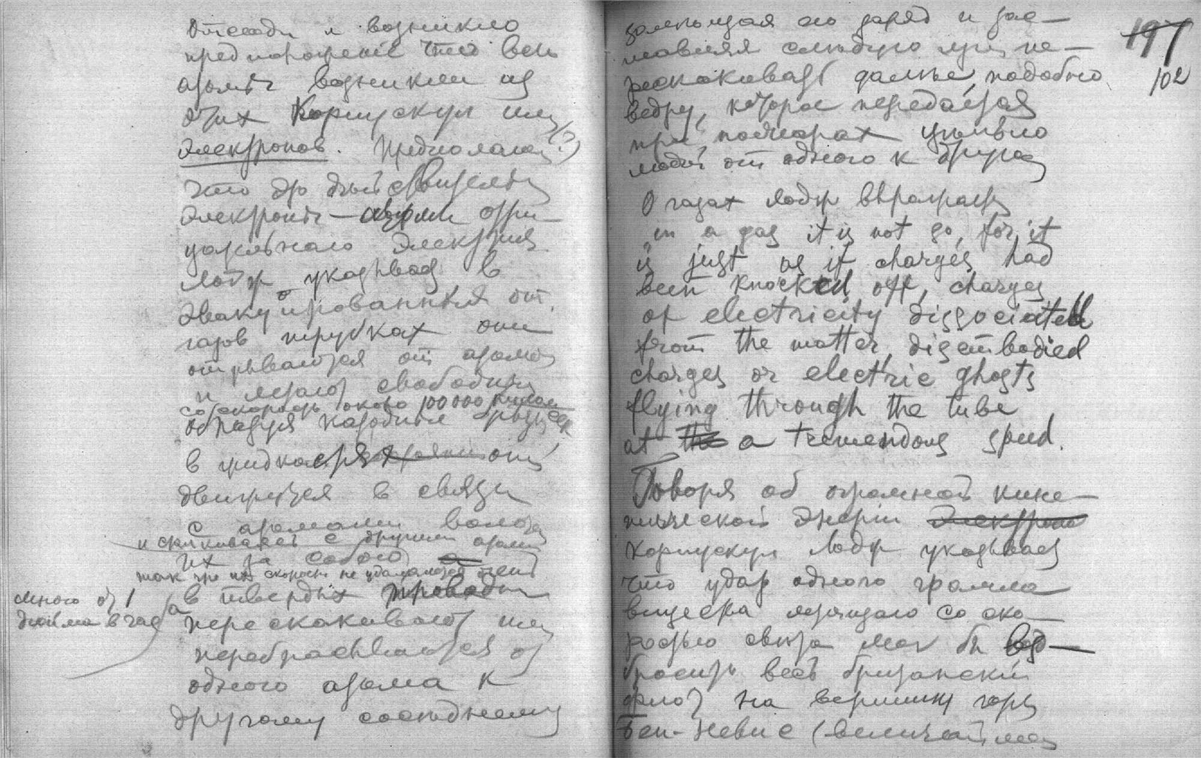 Отсюда и возникло
предположение что весь
атомъ возникли из
этих Корпускул или
Электронов. Предполагаю (?)
что это действительно
Электроны — атомы отри-
цательнаго Электрич.
Лодж указывает в
Эвакуированных от
газов трубках они
отрываются от атомов
и летают свободные
со скоростью около 100000
образуя катодные
в жидкостях они
двигаются в связи
с атомами волоча
и сталкиваясь с другими атомами
их за собою
так что их скорость не удаляется
много от 1
дюйма в час
в твердых проводн
перескакивают или
перебрасываются от
одного атома к
другому соседнему
197
102
его заряд и зас-
тавляя следующую пе-
рескакивать далее подобно
ведру, которое передается
при пожарах цепью
людей от одного к другому
О газах Лодж выражается
in a gas it is not so, for it
is just as if charges had
been knocked off, charges
of electricity dissociated
from the matter, disembodied
charges or electric ghosts
flying through the tube
at the a tremendous speed.
Говоря об огромной кине-
тической энергии Электрона
корпускул Лодж указывает
что удар одного грамма
вещества летящаго со ско-
ростью света мог бы вз-
бросить весь британский
флот на вершину горы
Бен-Невис (величайшая